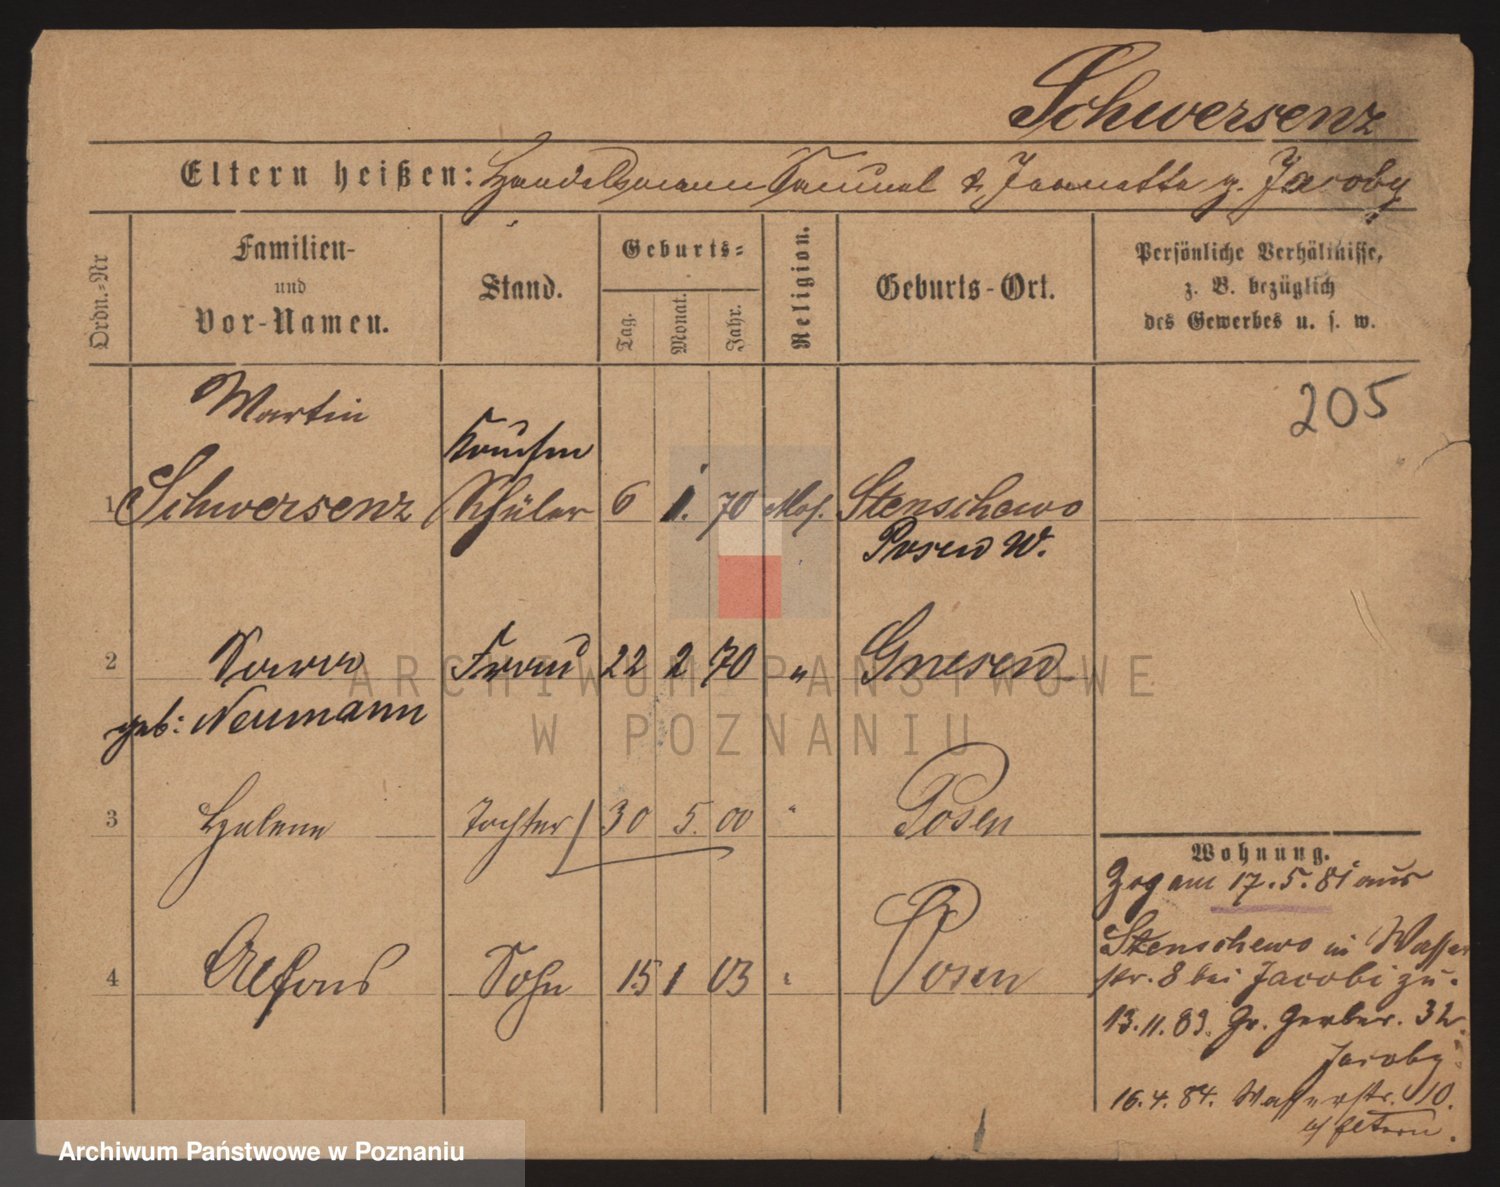 Schwersenz
Eltern heißen: Handelsmann Samuel & Jeannette g. Jacoby
Ordn.-Nr
Familien-
und
Vor-Namen.
Stand.
Geburts-
Tag.
Monat.
Jahr.
Religion.
Geburts-Ort.
Persönliche Verhältnisse,
z. B. bezüglich
des Gewerbes u. s. w.
205
Martin
Kaufm
1 Schwersenz Schüler 6 1. 70 Mos. Stenschewo
Posen W.
2 Frau 22 2 70 " Gnesen
geb: Neumann
3 Helene Tochter 30 5. 00 " Posen
4 Alfons Sohn 15 1 03 " Posen
Wohnung.
Zog am 17.5.81 aus
Stenschewo in Wasser
str. 8 bei Jacobi zu.
13.11.83. Gr. Gerber. 32.
Jacoby.
16.4.84. Wasserstr. 10.
b/ Eltern.
ARCHIWUM PAŃSTWOWE
W POZNANIU
Archiwum Państwowe w Poznaniu